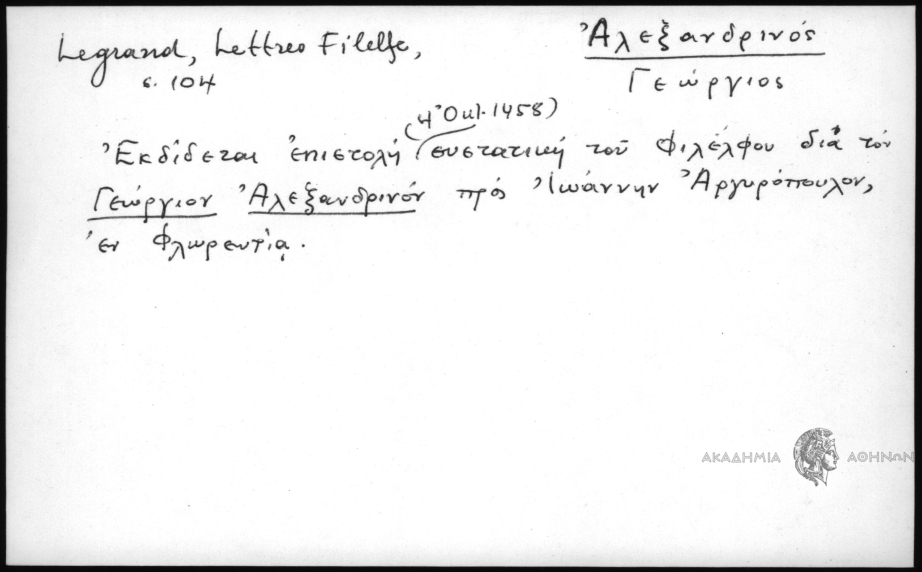 Legrand, Lettres Filelfe,
σ. 104
Ἀλεξανδρινός
Γεώργιος
(4 Ὀκτ. 1458)
Ἐκδίδεται ἐπιστολή συστατική τοῦ Φιλέλφου διά τόν
Γεώργιον Ἀλεξανδρινόν πρός Ἰωάννην Ἀργυρόπουλον,
ἐν Φλωρεντίᾳ.
ΑΚΑΔΗΜΙΑ ΑΘΗΝΩΝ